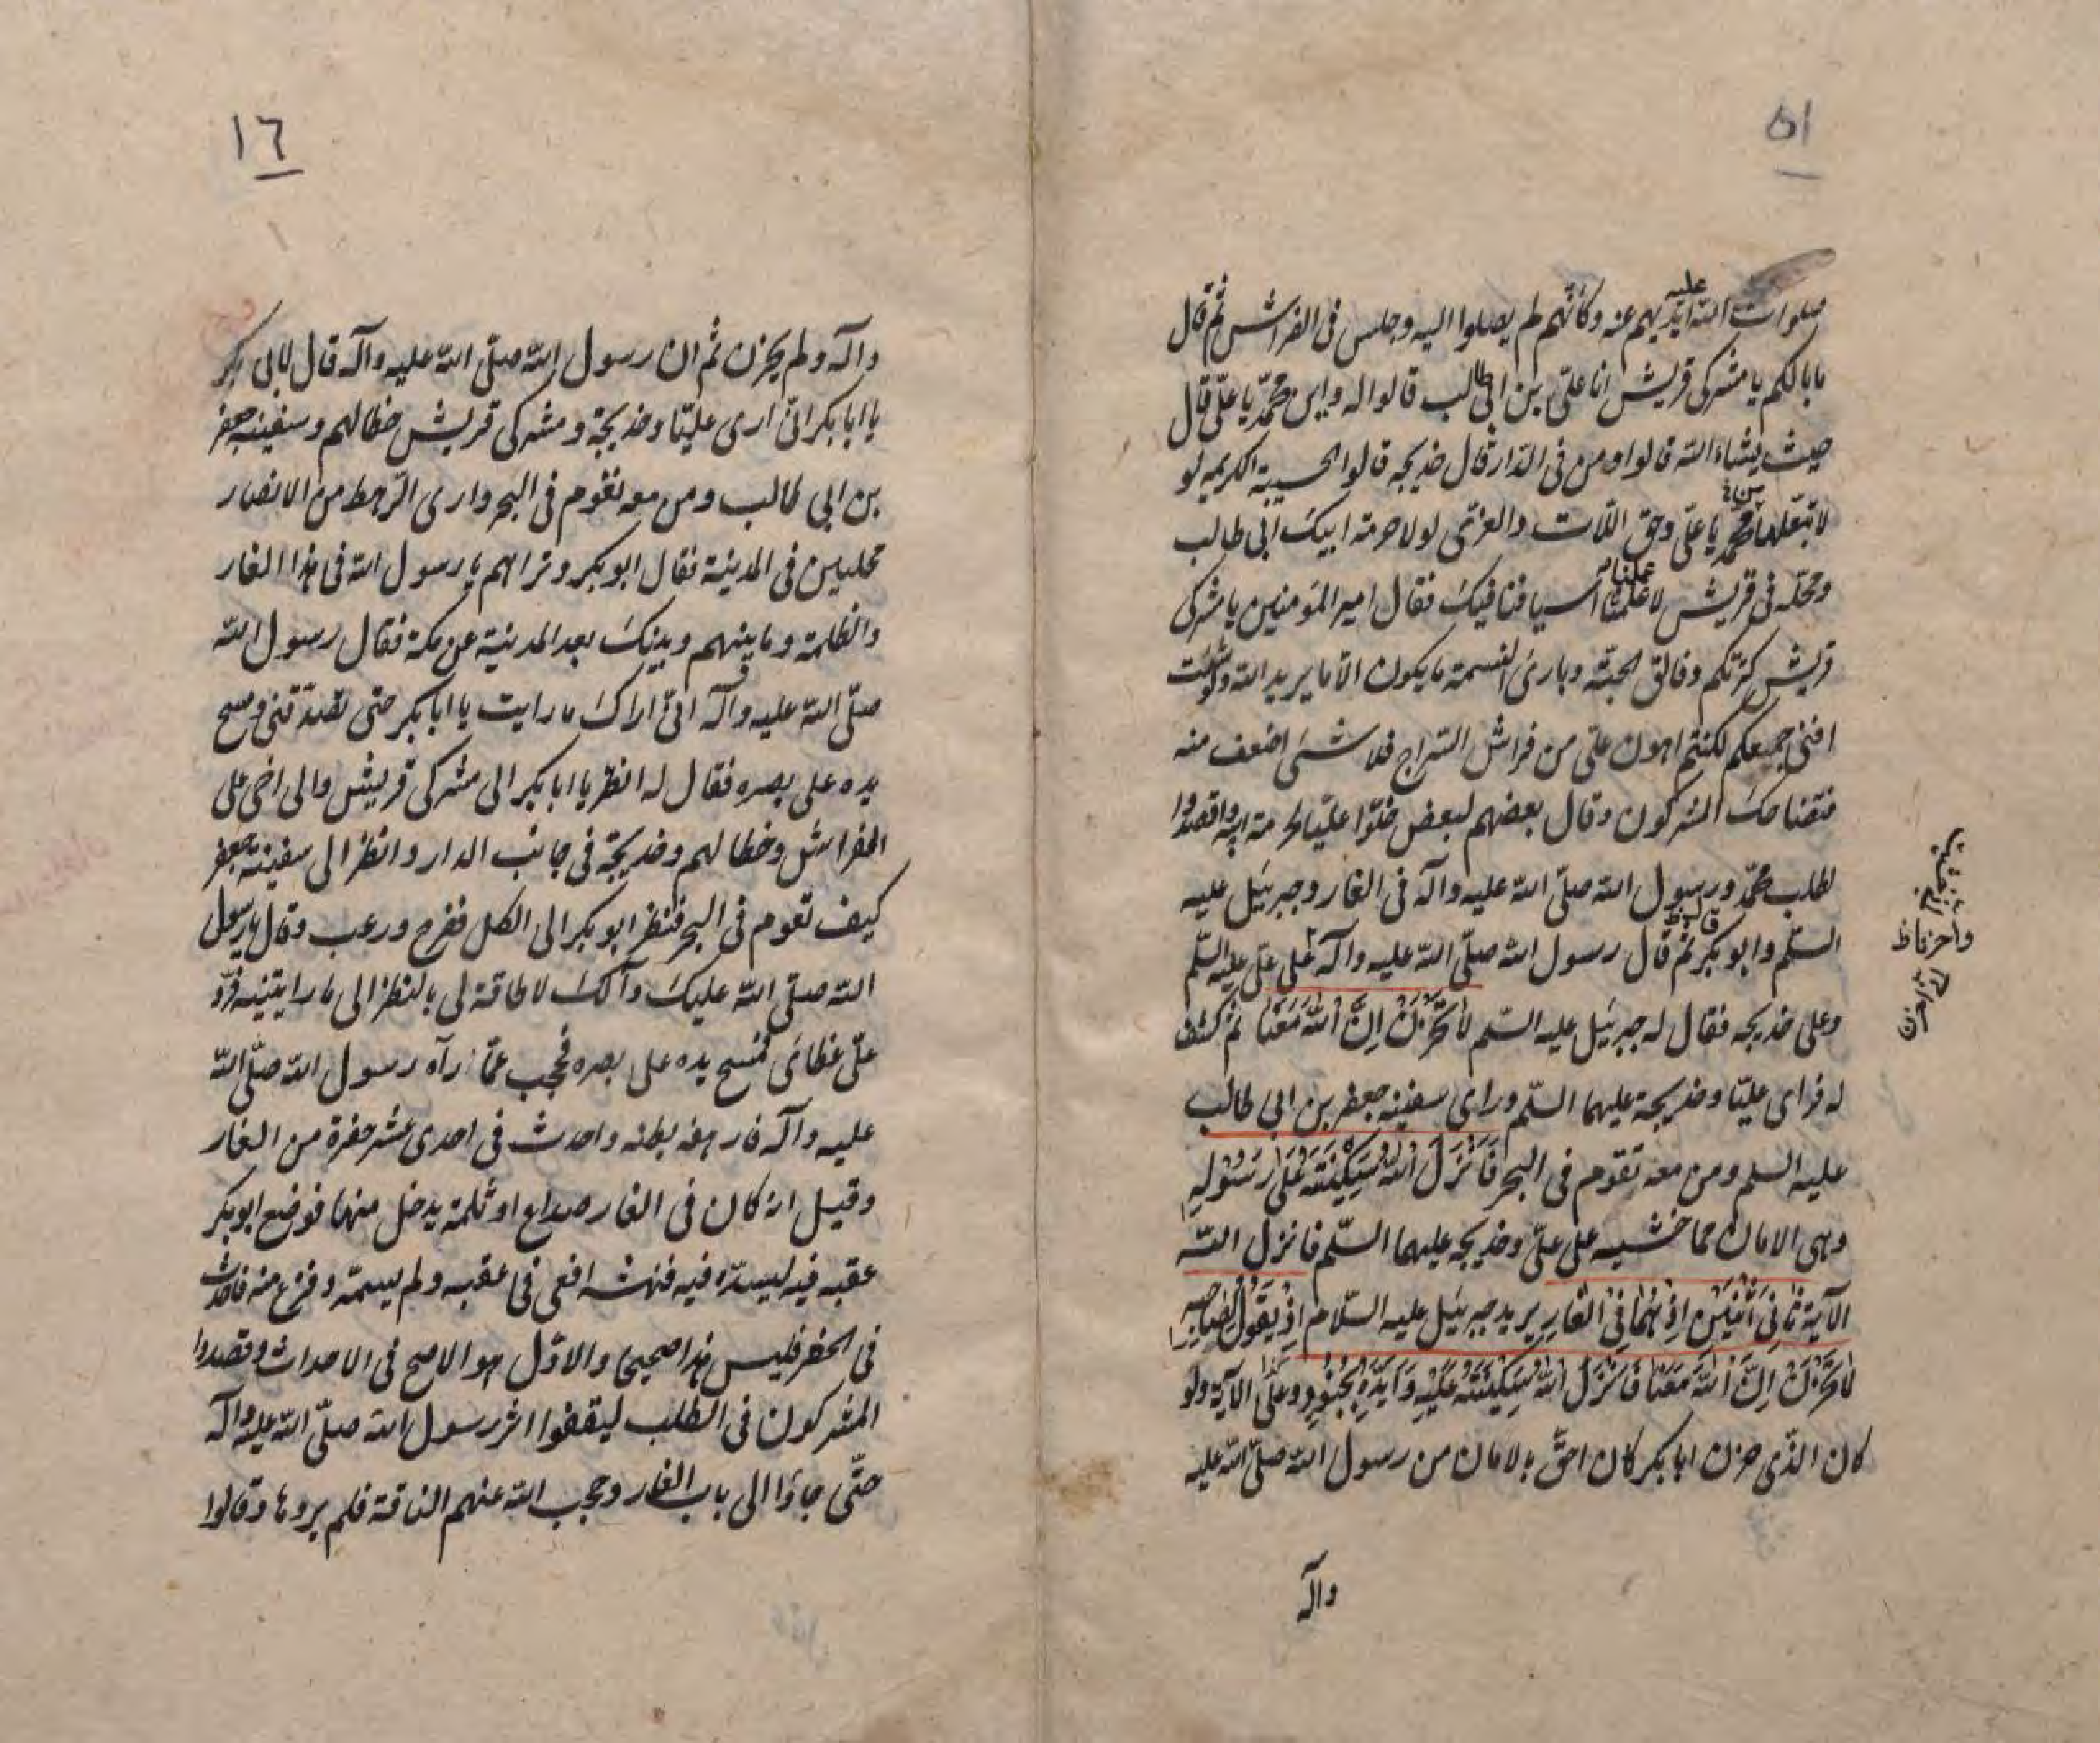 ١٥
صلوات الله عليه ايديهم عنه وكانهم لم يصلوا اليه وجلس فى الفراش ثم قال
مابالكم يا مشركى قريش انا علىّ بن ابى طالب قالوا له واين محمّد يا علىّ قال
حيث يشاء الله قالوا ومن فى الدّار قال خديجه قالوا الحسيبة الكريمه لو
لا تبعّلها بمحمد يا علىّ وحق اللّات والعزّى لولا حرمة ابيك ابى طالب
ومحلّه فى قريش لاعملنا اسيافنا فيك فقال امير المؤمنين يا مشركى
قريش كثرتكم وفالق الحبّة وبارئ النسمة ما يكون الّا ما يريد الله ولو شئت
افنى جميعكم لكنتم اهون علىّ من فراش السّراج فلا شئ اضعف منه
فتضاحك المشركون وقال بعضهم لبعض خلّوا عليّا لحرمة ابيه واقصدوا
لطلب محمّد ورسول الله صلّى الله عليه وآله فى الغار وجبرئيل عليه
السّلم وابو بكر ثم قال رسول الله صلّى الله عليه وآله على علىّ عليه السّلم
وعلى خديجه فقال له جبرئيل عليه السّلم لَا تَحْزَنْ اِنَّ اللّٰهَ مَعَنَا ثم كشف
له فراى عليّا وخديجة عليهما السّلم وراى سفينه جعفر بن ابى طالب
عليه السلم ومن معه تقوم فى البحر فَاَنْزَلَ اللّٰهُ سَكِيْنَتَهُ عَلٰى رَسُوْلِهِ
وهى الامان مما خشيه على علىّ وخديجه عليهما السّلم فانزل اللّه
الآية ثَانِىَ اثْنَيْنِ اِذْ هُمَا فِى الْغَارِ يريد جبرئيل عليه السّلام اِذْ يَقُوْلُ لِصَاحِبِهِ
لَا تَحْزَنْ اِنَّ اللّٰهَ مَعَنَا فَاَنْزَلَ اللّٰهُ سَكِيْنَتَهُ عَلَيْهِ وَاَيَّدَهُ بِجُنُوْدٍ الآية ولو
كان الذّى حزن ابا بكر كان احقّ بالامان من رسول الله صلّى الله عليه
وآله
١٦
وآله ولم يحزن ثم ان رسول الله صلّى الله عليه وآله قال لابى بكر
يا ابا بكر انّى ارى عليّا وخديجة ومشركى قريش خطا لهم وسفينه جعفر
بن ابى طالب ومن معه تقوم فى البحر وارى الرّهط من الانصار
مجلبين فى المدينة فقال ابو بكر وتراهم يا رسول الله فى هذا الغار
والظلمة وما بينهم وبينك بعد المدينة عن مكة فقال رسول الله
صلّى الله عليه وآله انّى اراك ما رايت يا ابا بكر حتى تصدّقنى ومسح
يده على بصره فقال له انظر يا ابا بكر الى مشركى قريش والى اخى على
الفراش وخطا لهم وخديجة فى جانب الدار وانظر الى سفينة جعفر
كيف تعوم فى البحر فنظر ابو بكر الى الكل ففزع ورعب وقال يا رسول
الله صلّى الله عليك وآلك لا طاقة لى بالنظر الى ما رايتنيه فردّ
علىّ غطائى فمسح يده على بصره فحجب عمّا رآه رسول الله صلّى الله
عليه وآله بطنه واحدث فى احدى عشر حفرة من الغار
وقيل انه كان فى الغار صداع او ثلمة يدخل منها فوضع ابو بكر
عقبه فيه ليسدّه فيه فنهشه افعى فى عقبه ولم يسمّه وفزع منه فاحدث
فى الحفر فليس هذا صحيحا والاوّل هو الاصح فى الاحداث وقصدوا
المشركون فى الطلب ليقفوا اثر رسول الله صلّى الله عليه وآله
حتّى جاؤا الى باب الغار وحجب الله عنهم الناقة فلم يروها وقالوا